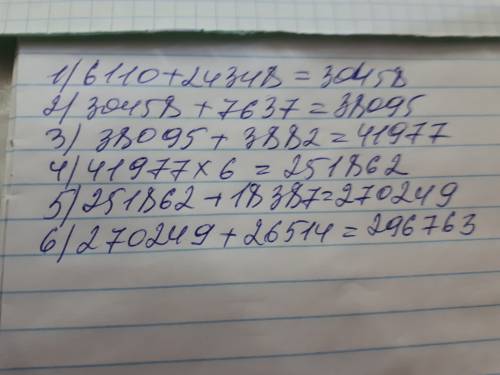 1) 6110+24348=30458
2) 30458+7637=38095
3) 38095+3882=41977
4) 41977×6=251862
5) 251862+18387=270249
6) 270249+26514=296763